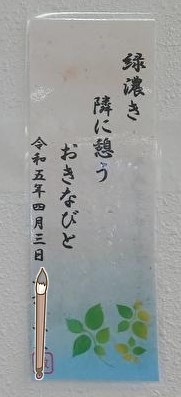 緑濃き
隣に憩う
おきなびと
令和五年四月三日